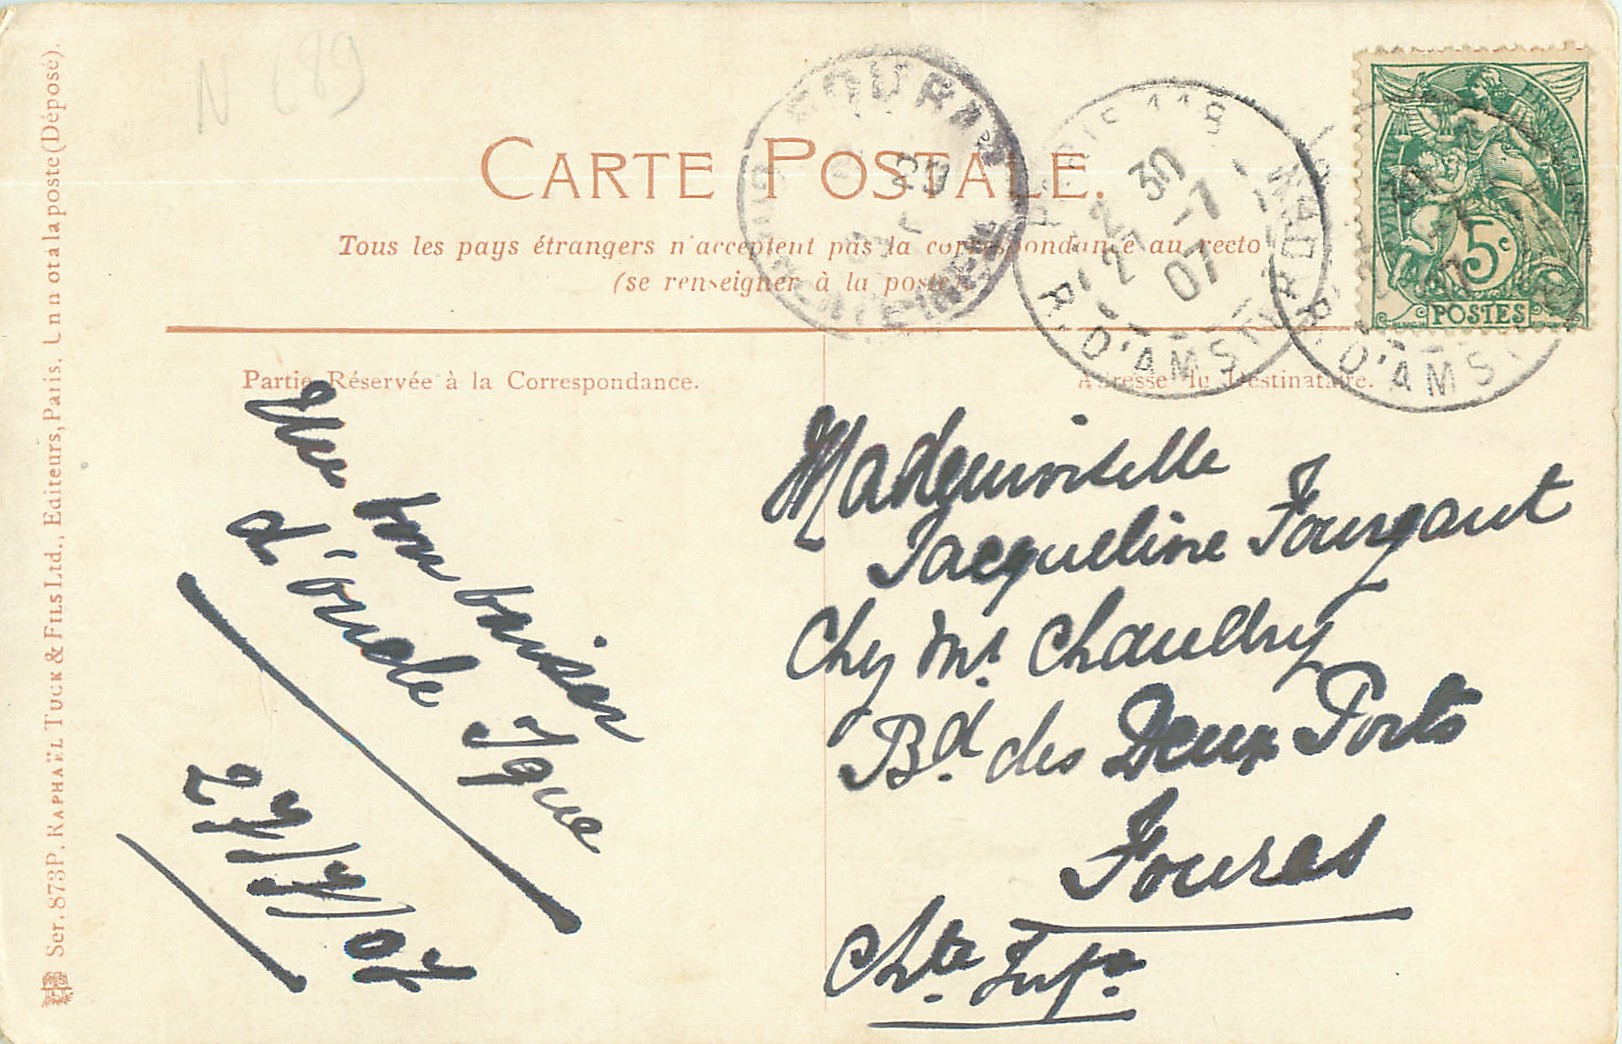 N 689
CARTE POSTALE.
Tous les pays étrangers n'acceptent pas la correspondance au recto
(se renseigner à la poste).
Partie Réservée à la Correspondance.
Adresse du Destinataire.
Ser. 873P. RAPHAËL TUCK & FILS Ltd., Editeurs, Paris. Un nota la poste (Déposé).
FOURAS
29
INFERIEURE
PARIS 118
2 30
27 -7
07
R. D'AMSTERDAM
R. D'AMST
5c
POSTES
Un bon baiser
d'oncle
27/7/07
Mademoiselle
Jacqueline Fourgaut
Chez Mr. Chaudry
Bd. des Deux Ports
Fouras
Chte. Infre